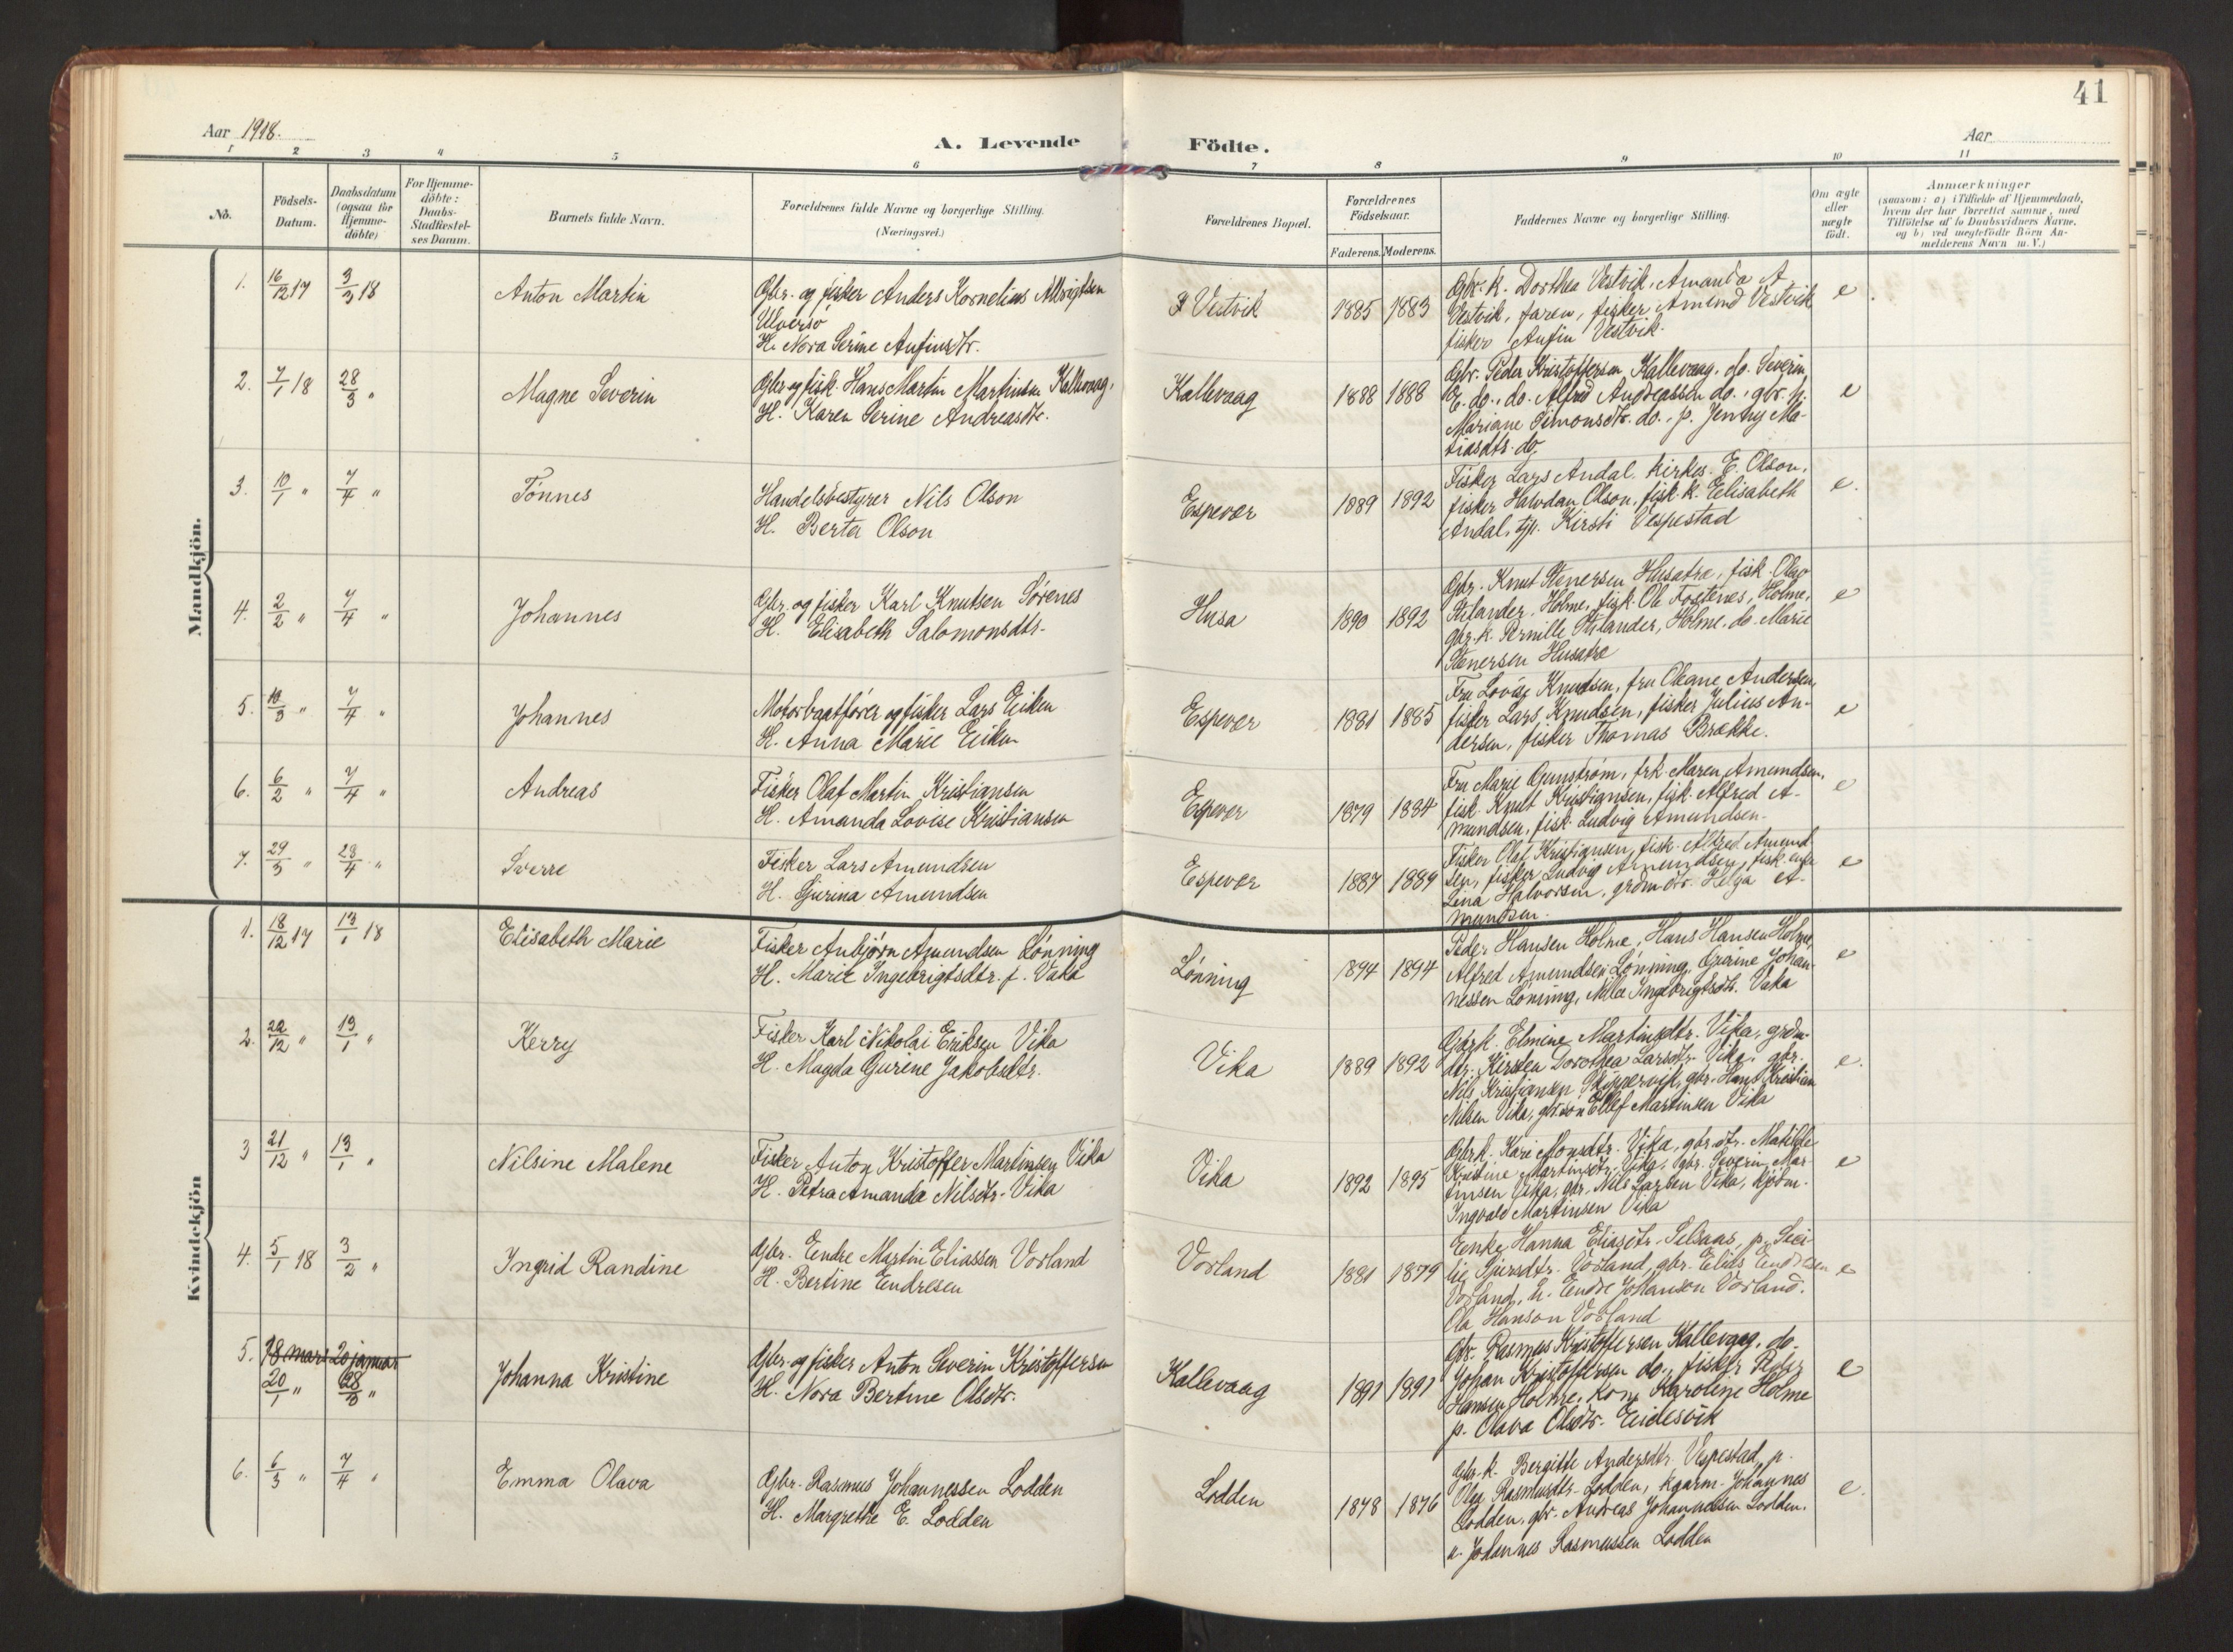 41
Aar 1918.
A. Levende Födte.
Aar
1 2 3 4 5 6 7 8 9 10 11
No.
Födsels-
Datum.
Daabsdatum
(ogsaa for
Hjemme-
döbte)
For Hjemme-
döbte:
Daabs-
Stadfæstel-
ses Datum.
Barnets fulde Navn.
Forældrenes fulde Navne og borgerlige Stilling.
(Næringsvei.)
Forældrenes Bopæl.
Forældrenes
Födselsaar.
Faderens. Moderens.
Faddernes Navne og borgerlige Stilling.
Om ægte
eller
uægte
födt.
Anmærkninger
(saasom: a) i Tilfælde af Hjemmedaab,
hvem der har forrettet samme, med
Tilföielse af to Daabsvidners Navne.
og b) ved uægtefödte Börn An-
melderens Navn m. V.)
Mandkjön.
1. 16/12 17 3/3 18 Anton Martin
Gbr. og fisker Anders Kornelius Albrigtsen
Ulversö
H. Nora Serine Aufinsdtr.
I Vestvik 1885 1883
Gbr. k. Dorthea Vestvik, Amanda A.
Vestvik, faren, fisker Amund Vestvik
fisker Aufin Vestvik.
e
2. 7/1 18 28/3 " Magne Severin
Gbr. og fisk. Hans Martin Martinsen Kallevaag.
H. Karen Serine Andreasdtr.
Kallevaag 1888 1888
Gbr. Peder Kristoffersen Kallevaag, do. Severin
E. do., do. Alfred Andreassen do., gbr. k.
Mariane Simonsdtr. do., p. Jenny Ma-
tiasdtr. do.
e
3. 10/1 " 7/4 " Tönnes
Handelsbestyrer Nils Olson
H. Berta Olson
Espevær 1889 1892
Fisker Lars Andal, kirkes. E. Olson,
fisker Halvdan Olson, fisk. k. Elisabeth
Andal, tjp. Kirsti Vespestad
e.
4. 2/2 " 7/4 " Johannes
Gbr. og fisker Karl Knutsen Sörenes
H. Elisabeth Salomonsdtr.
Husa 1890 1892
Gbr. Knut Stenersen Husatræ, fisk. Olav
Stilander, Holme, fisk. Ole Fostenes, Holme,
gbr. k. Pernille Stilander, Holme, do. Marie
Stenersen Husatræ
e
5. 10/3 " 7/4 " Johannes
Motorbaatförer og fisker Lars Eiken
H. Anna Marie Eiken
Espevær 1881 1885
Fru Lovise Knudsen, fru Oleane Andersen,
fisker Lars Knudsen, fisker Julius An-
dersen, fisker Thomas Brække.
e
6. 6/2 " 7/4 " Andreas
Fisker Olaf Martin Kristiansen
H. Amanda Lovise Kristiansen
Espevær 1879 1884
Fru Marie Gunström, frk. Maren Amundsen,
fisk. Knut Kristiansen, fisk. Alfred A-
mundsen, fisk. Ludvig Amundsen.
e
7. 29/3 " 28/4 " Sverre
Fisker Lars Amundsen
H. Gjurina Amundsen
Espevær 1887 1889
Fisker Olaf Kristiansen, fisk. Alfred Amund-
sen, fisker Ludvig Amundsen, fisk. enke
Lina Halvorsen, grdm. dtr. Helga A-
mundsen.
e
Kvindekjön
1. 18/12 17 13/1 18 Elisabeth Marie
Fisker Anbjörn Amundsen Lönning
H. Marie Ingebrigtsdtr. f. Vaka
Lönning 1894 1894
Peder Hansen Holme, Hans Hansen Holme,
Alfred Amundsen Lönning, Gjurine Johan-
nessen Lönning, Milla Ingebrigtsdtr. Vaka
e
2. 22/12 " 13/1 " Kerry
Fisker Karl Nikolai Eriksen Vika
H. Magda Gjurine Jakobsdtr.
Vika 1889 1892
Gbr. k. Elmine Martinsdtr. Vika, grdm.
dtr. Kirsten Dorothea Larsdtr. Vika, gbr.
Nils Kristiansen Skippervik, gbr. Hans Kristian
Nilsen Vika, gbr. sön Ellef Martinsen Vika
e.
3 21/12 " 13/1 " Nilsine Malene
Fisker Anton Kristoffer Martinsen Vika
H. Petra Amanda Nilsdtr. Vika
Vika 1892 1895
Gbr. k. Kari Monsdtr. Vika, gbr. dtr. Matilde
Kristine Martinsdtr. Vika, gbr. Severin Mar-
tinsen Vika, gbr. Nils Larsen Vika, kjöbm.
Ingvald Martinsen Vika
e
4. 5/1 18 3/2 " Ingrid Randine
Gbr. Endre Martin Eliassen Vorland
H. Bertine Endresen
Vorland 1881 1879
Enke Hanna Eliasdtr. Selsaas, p. Seci-
lie Gjersdtr. Vorland, gbr. Elias Endresen
Vorland, u. Endre Johanson Vorland.
Ola Hanson Vorland
e
5. 18 mars 20 januar
20/1 " 28/3 " Johanna Kristine
Gbr. og fisker Anton Severin Kristoffersen
H. Nora Bertine Olsdtr.
Kallevaag 1891 1891
Gbr. Rasmus Kristoffersen Kallevaag, do.
Johan Kristoffersen do., fisker Peder
Hansen Holme, kone Karoline Holme
p. Olava Olsdtr. Eidesvik
e
6. 6/3 " 7/4 " Emma Olava
Gbr. Rasmus Johannessen Lodden
H. Margrethe E. Lodden
Lodden 1878 1876
Gbr. k. Bergitte Andersdtr. Vespestad, p.
Olga Rasmusdtr. Lodden, kaarm. Johannes
Lodden, gbr. Andreas Johannessen Lodden.
u. Johannes Rasmussen Lodden
e.